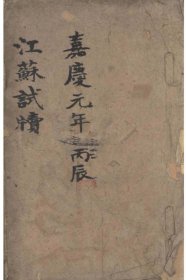 嘉慶元年丙辰
江蘇試牘